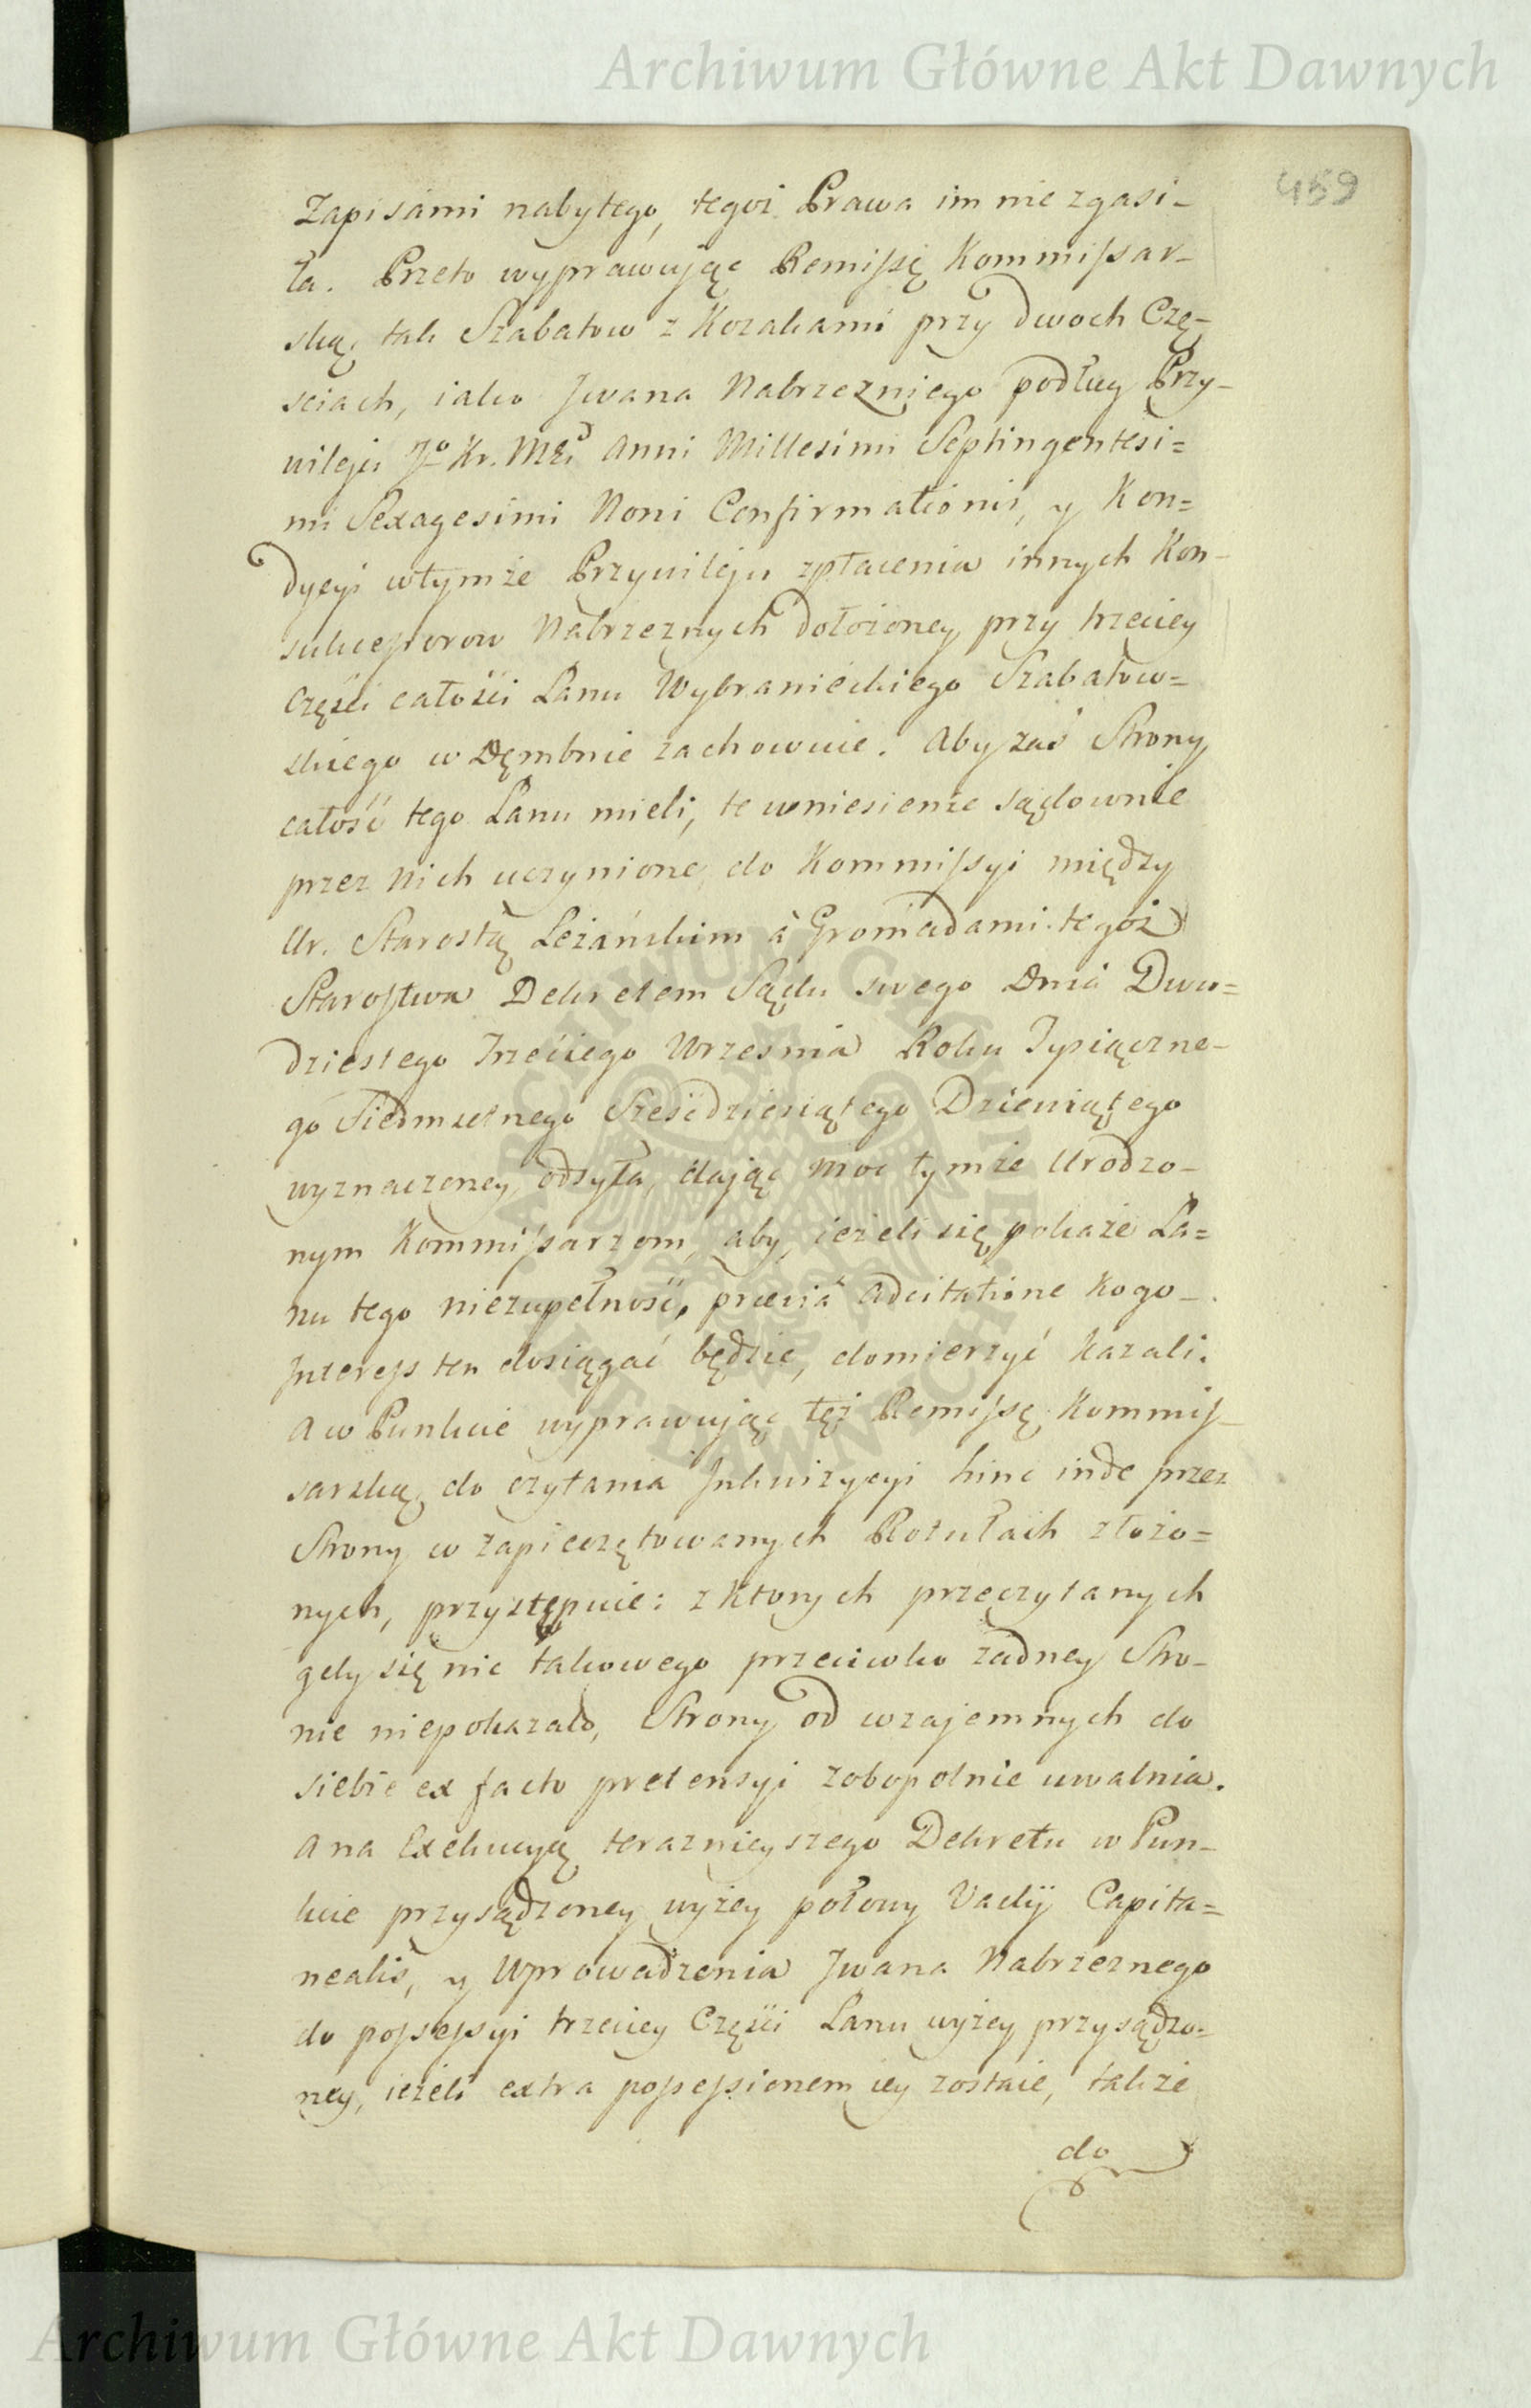 Archiwum Główne Akt Dawnych
459
Zapisami nabytego, tegoż Prawa im nie zgasi-
ła. Przeto wyprawując Remissę Kommissar-
ską, tak Szabatow z Kozakami przy dwoch Czę-
ściach, iako Jwana Nabrzezniego podług Przy-
wileju Jo Kr. Mci Anni Millesimi Septingentesi=
mi Sexagesimi Noni Confirmationis, y Kon=
dycyi wtymże Przywileju zpłacenia innych Kon-
sukcessorow Nabrzeznych dołożoney, przy trzeciey
Części całości Lanu Wybranieckiego Szabatow=
skiego w Dęmbnie zachowuie. Aby zaś Strony
całość tego Lanu mieli, te wniesienie sądownie
przez nich uczynione, do Kommissyi między
Ur. Starostą Leżańskim à Gromadami tegoż
Starostwa Dekretem Sądu swego Dnia Dwu=
dziestego Trzeciego Września Roku Tysiączne-
go Siedmsetnego Sześćdziesiątego Dziewiątego
wyznaczoney, odsyła, dając moc tymże Urodzo-
nym Kommissarzom, aby, ieżeli się pokaże La=
nu tego niezupełność, prævia Adcitatione Kogo-
Jnteress ten dosiągać będzie, domierzyć Kazali.
A w Punkcie wyprawując tęż Remissę Kommis-
sarską, do czytania Jnkwizycyi hinc inde przez
Strony w zapieczętowanych Rotułach złożo=
nych, przystępuie: z Ktorych przeczytanych
gdy się nic takowego przeciwko żadney Stro-
nie niepokazało, Strony od wzajemnych do
siebie ex facto pretensyi zobopolnie uwalnia.
A na Exekucyą teraznieyszego Dekretu w Pun-
kcie przysądzoney wyżey połowy Vadij Capita=
nealis, y Wprowadzenia Jwana Nabrzeznego
do possessyi trzeciey Części Lanu wyżey przysądzo=
ney, ieżeli extra possessionem iey zostaie, także
do
ARCHIWUM GŁÓWNE AKT DAWNYCH
Archiwum Główne Akt Dawnych